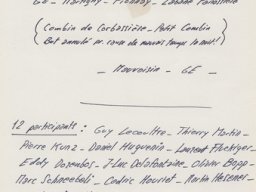 GE - Martigny - Fionnay - Cabane Panossière
(Combin de Corbassière - Petit Combin
(But annulé en raison de mauvais temps la nuit!)
- Mauvoisin - GE -
12 participants : Guy Lecoultre - Thierry Martin -
Pierre Kunz - Daniel Huguenin - Laurent Fluckiger -
Eddy Dosembas - J-Luc Delafontaine - Olivier Bopp -
Marc Schneebeli - Cédric Houriet - Martin Messner -